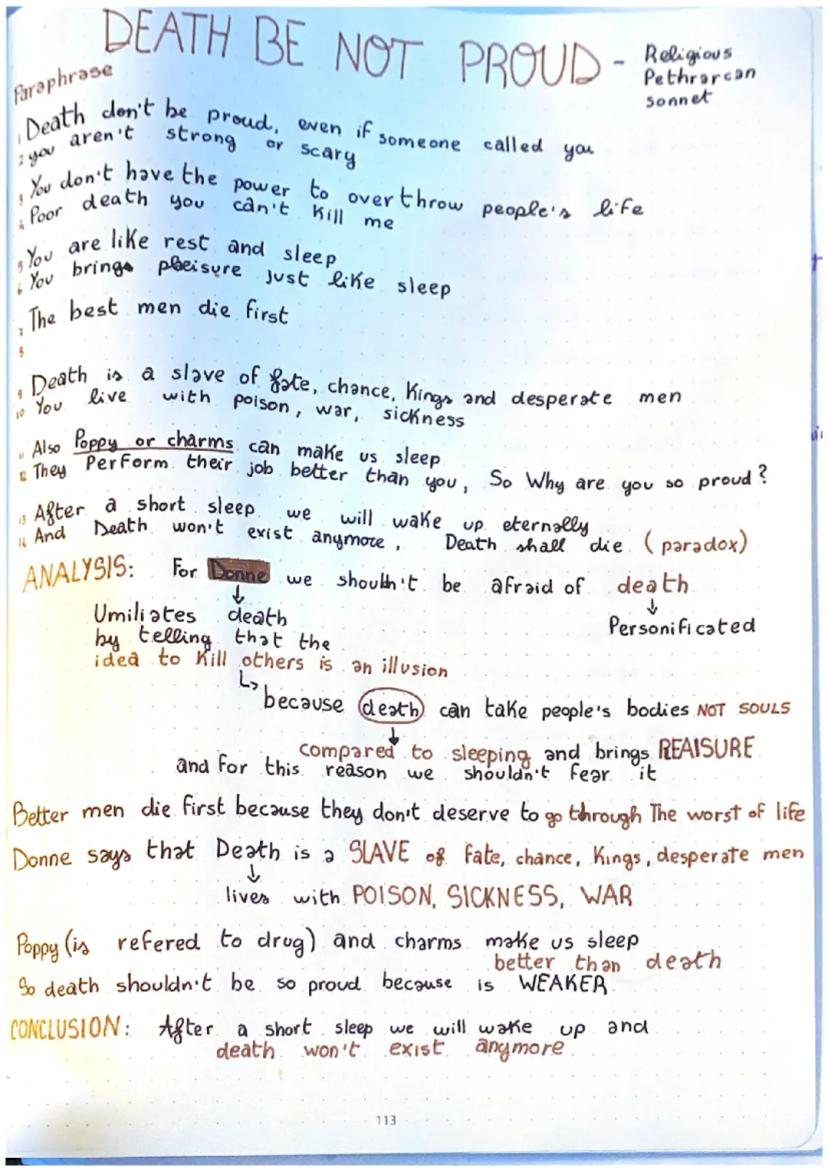 DEATH BE NOT PROUD - Religious
Pethrarcan
sonnet
Paraphrase
1 Death don't be proud, even if someone called you
2 you aren't strong or scary
3 You don't have the power to overthrow people's life
4 Poor death you can't kill me
5 You are like rest and sleep
6 You brings pleisure just like sleep
7 The best men die first
8
9 Death is a slave of fate, chance, Kings and desperate men
10 You live with poison, war, sickness
11 Also Poppy or charms can make us sleep
12 They Perform their job better than you, So Why are you so proud?
13 After a short sleep we will wake up eternally
14 And Death won't exist anymore, Death shall die (paradox)
ANALYSIS: For Donne we shouln't be afraid of death
↓ ↓
Umiliates death Personificated
by telling that the
idea to kill others is an illusion
↳ because death can take people's bodies NOT SOULS
↓
compared to sleeping and brings REAISURE
and for this reason we shouldn't fear it
Better men die first because they don't deserve to go through The worst of life
Donne says that Death is a SLAVE of fate, chance, Kings, desperate men
↓
lives with POISON, SICKNESS, WAR
Poppy (is refered to drug) and charms make us sleep
better than death
So death shouldn't be so proud because is WEAKER
CONCLUSION: After a short sleep we will wake up and
death won't exist anymore
113